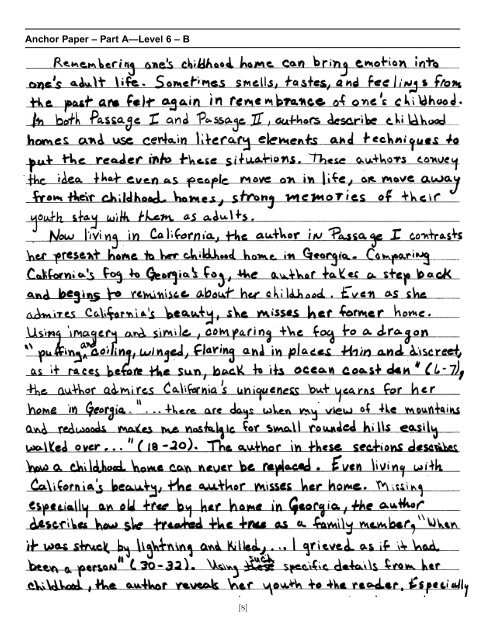 Anchor Paper – Part A—Level 6 – B
Remembering one's childhood home can bring emotion into
one's adult life. Sometimes smells, tastes, and feelings from
the past are felt again in remembrance of one's childhood.
In both Passage I and Passage II, authors describe childhood
homes and use certain literary elements and techniques to
put the reader into these situations. These authors convey
the idea that even as people move on in life, or move away
from their childhood homes, strong memories of their
youth stay with them as adults.
Now living in California, the author in Passage I contrasts
her present home to her childhood home in Georgia. Comparing
California's fog to Georgia's fog, the author takes a step back
and begins to reminisce about her childhood. Even as she
admires California's beauty, she misses her former home.
Using imagery and simile, comparing the fog to a dragon
"puffing, and coiling, winged, flaring and in places thin and discreet,
as it races before the sun, back to its ocean coast den" (6-7),
the author admires California's uniqueness but yearns for her
home in Georgia. "... there are days when my view of the mountains
and redwoods makes me nostalgic for small rounded hills easily
walked over..." (18-20). The author in these sections describes
how a childhood home can never be replaced. Even living with
California's beauty, the author misses her home. Missing
especially an old tree by her home in Georgia, the author
describes how she treated the tree as a family member, "When
it was struck by lightning and killed,... I grieved as if it had
been a person" (30-32). Using such specific details from her
childhood, the author reveals her youth to the reader. Especially
[8]